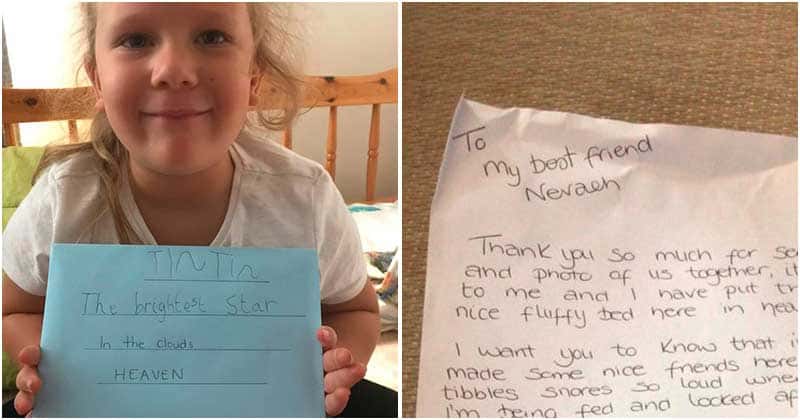 TIN Tin
The brightest Star
In the clouds
HEAVEN
To
My best friend
Nevaeh
Thank you so much for
and photo of us together,
to me and I have put
nice fluffy bed here in
I want you to know that
made some nice friends here
tibbles snores so loud
I'm being fed and looked